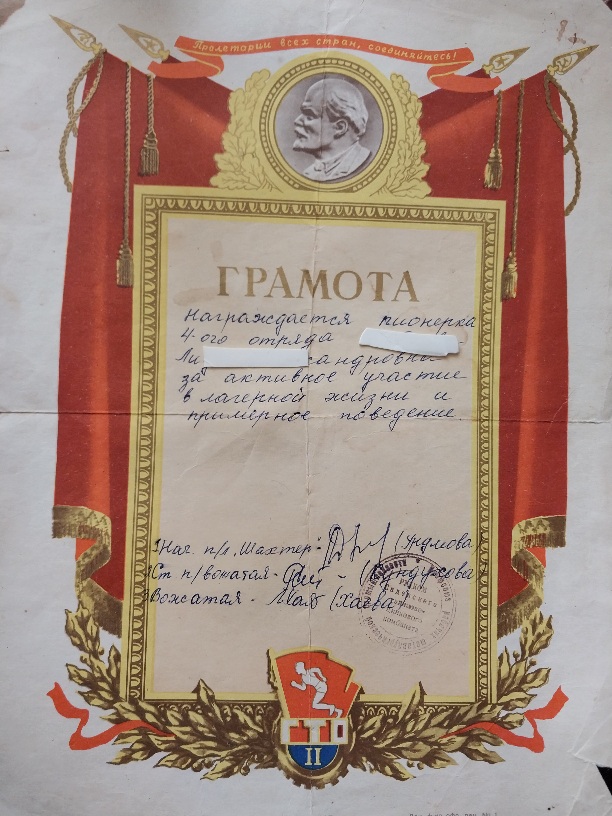 Пролетарии всех стран, соединяйтесь!
ГРАМОТА
Награждается пионерка
4-ого отряда
Ли сандровна
за активное участие
в лагерной жизни и
примерное поведение.
Нач. п/л „Шахтер"
Ст п/вожатая -
Вожатая - (Хаева)
ГТО
II